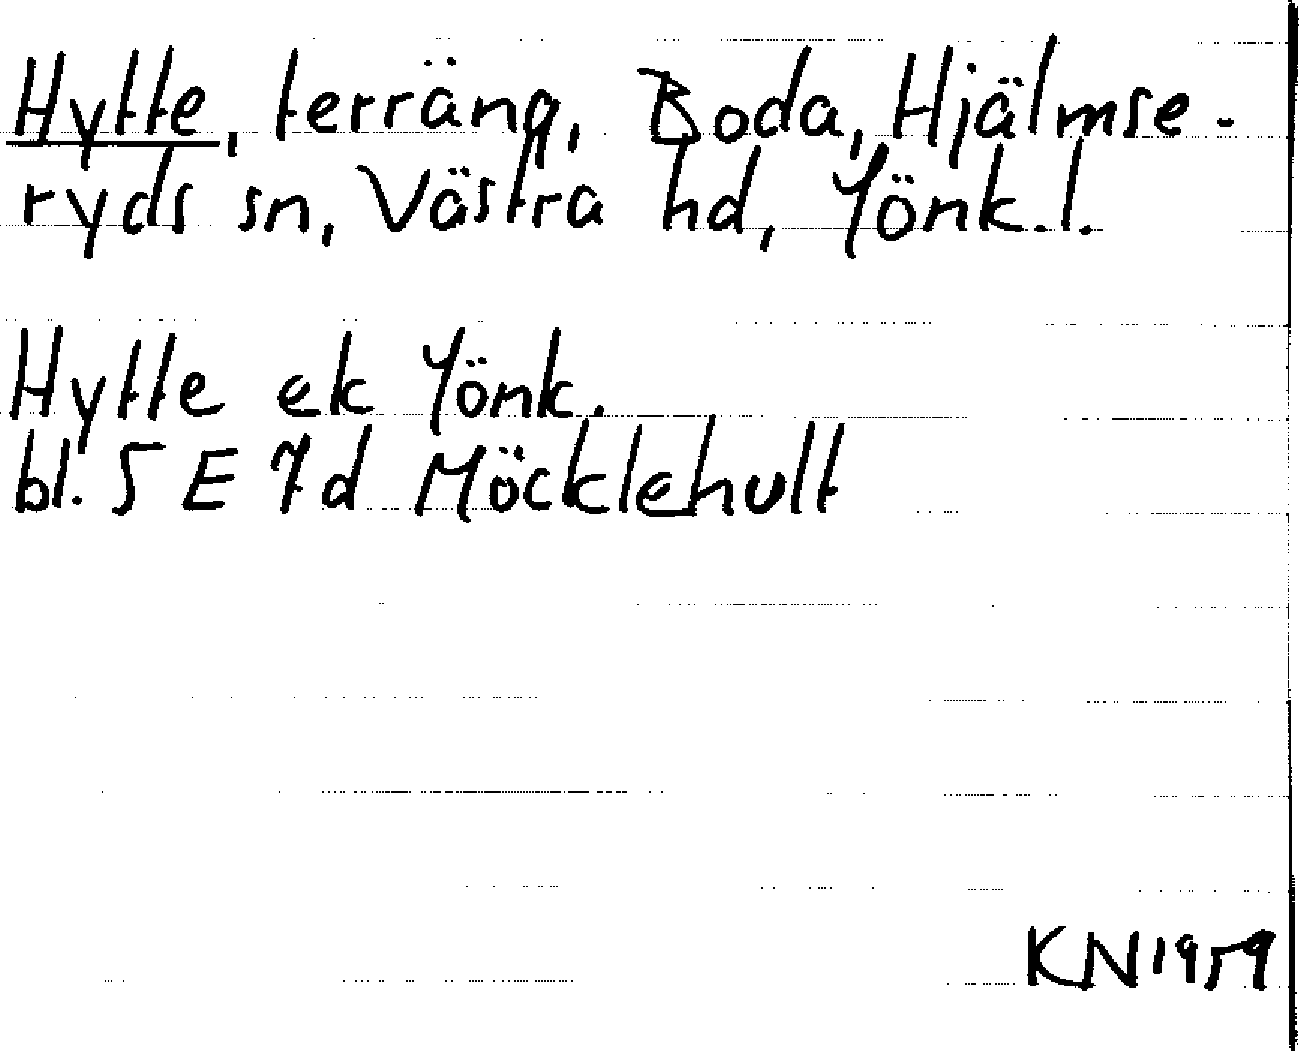 Hytte, terräng, Boda, Hjälmse-
ryds sn, Västra hd, Jönk.l.
Hytte ek Jönk.
bl. 5 E 7d Möcklehult
KN 1959